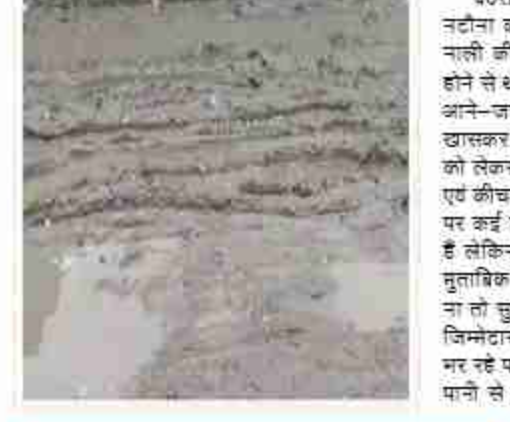 नटौना व
नाली की
होने से ध
आने-ज
खासकर
को लेकर
एवं कीच
पर कई
हैं लेकिन
मुताबिक
ना तो सु
जिम्मेदार
भर रहे प
पानी से